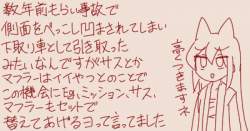 数年前もらい事故で
側面をぺっこし凹まされてしまい
下取り車として引き取った
みたいなんですがサスとか
マフラーはイイやつとのことで
この機会にEg、ミッション、サス、
マフラーもセットで
替えてあげるヨって言ってました
高くつきますネ